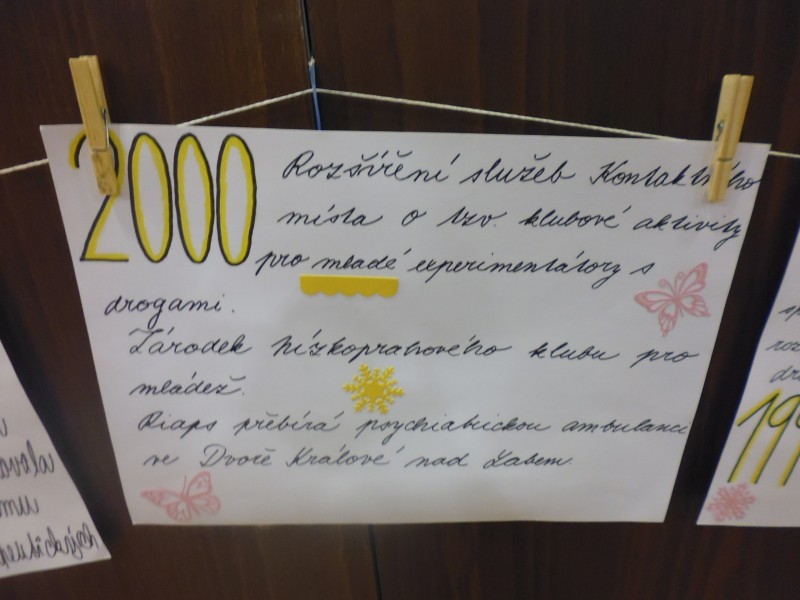 2000 Rozšíření služeb Kontaktního
místa o tzv. klubové aktivity
pro mladé experimentátory s
drogami.
Zárodek nízkoprahového klubu pro
mládež.
Riaps přebírá psychiatrickou ambulanci
ve Dvoře Králové nad Labem.
mu
199